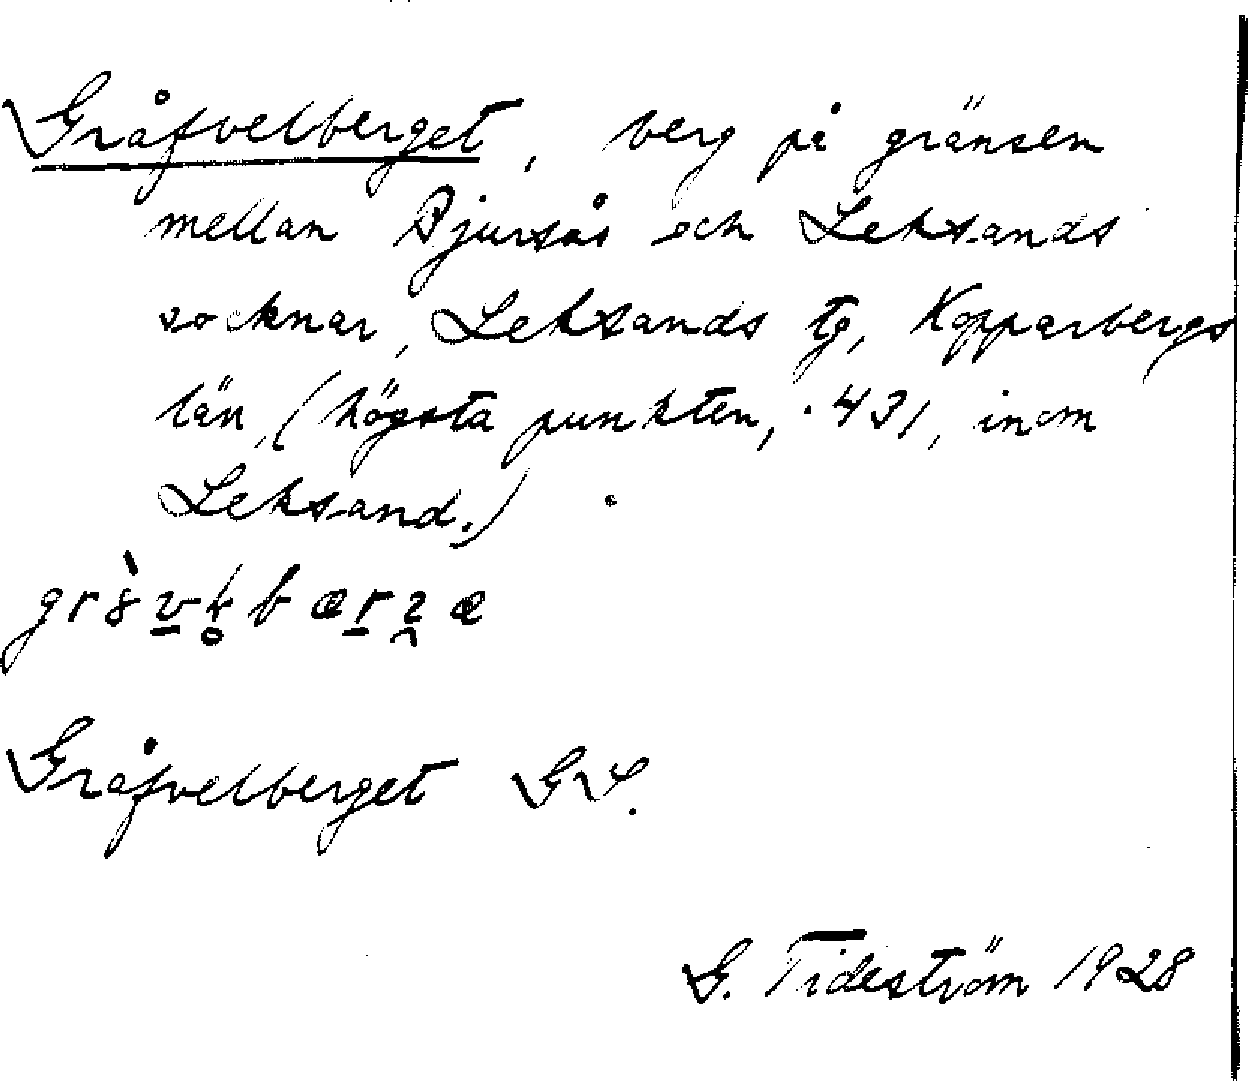 Gråfvelberget, berg på gränsen
mellan Bjursås och Leksands
socknar, Leksands tg, Kopparbergs
län, (högsta punkten, 431, inom
Leksand.)
Gråfvelberget GS.
G. Tideström 1928